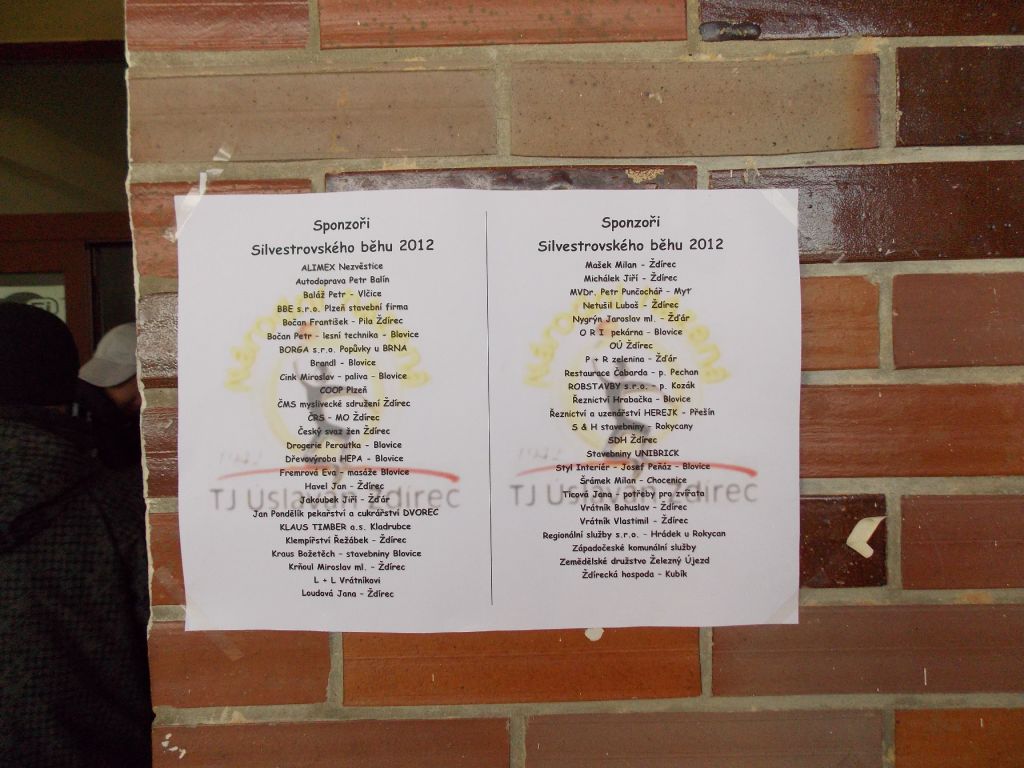 Sponzoři
Silvestrovského běhu 2012
ALIMEX Nezvěstice
Autodoprava Petr Balín
Baláž Petr - Vlčice
BBE s.r.o. Plzeň stavební firma
Bočan František - Pila Ždírec
Bočan Petr - lesní technika - Blovice
BORGA s.r.o. Popůvky u BRNA
Brandl - Blovice
Cink Miroslav - paliva - Blovice
COOP Plzeň
ČMS myslivecké sdružení Ždírec
ČRS - MO Ždírec
Český svaz žen Ždírec
Drogerie Peroutka - Blovice
Dřevovýroba HEPA - Blovice
Fremrová Eva - masáže Blovice
Havel Jan - Ždírec
Jakoubek Jiří - Žďár
Jan Pondělík pekařství a cukrářství DVOREC
KLAUS TIMBER a.s. Kladrubce
Klempířství Řežábek - Ždírec
Kraus Božetěch - stavebniny Blovice
Krňoul Miroslav ml. - Ždírec
L + L Vrátníkovi
Loudová Jana - Ždírec
TJ Úslavan Ždírec
Sponzoři
Silvestrovského běhu 2012
Mašek Milan - Ždírec
Michálek Jiří - Ždírec
MVDr. Petr Punčochář - Myť
Netušil Luboš - Ždírec
Nygrýn Jaroslav ml. - Žďár
O R I pekárna - Blovice
OÚ Ždírec
P + R zelenina - Žďár
Restaurace Čabarda - p. Pechan
ROBSTAVBY s.r.o. - p. Kozák
Řeznictví Hrabačka - Blovice
Řeznictví a uzenářství HEREJK - Přešín
S & H stavebniny - Rokycany
SDH Ždírec
Stavebniny UNIBRICK
Styl Interiér - Josef Peňáz - Blovice
Šrámek Milan - Chocenice
Ticová Jana - potřeby pro zvířata
Vrátník Bohuslav - Ždírec
Vrátník Vlastimil - Ždírec
Regionální služby s.r.o. - Hrádek u Rokycan
Západočeské komunální služby
Zemědělské družstvo Železný Újezd
Ždírecká hospoda - Kubík
TJ Úslavan Ždírec